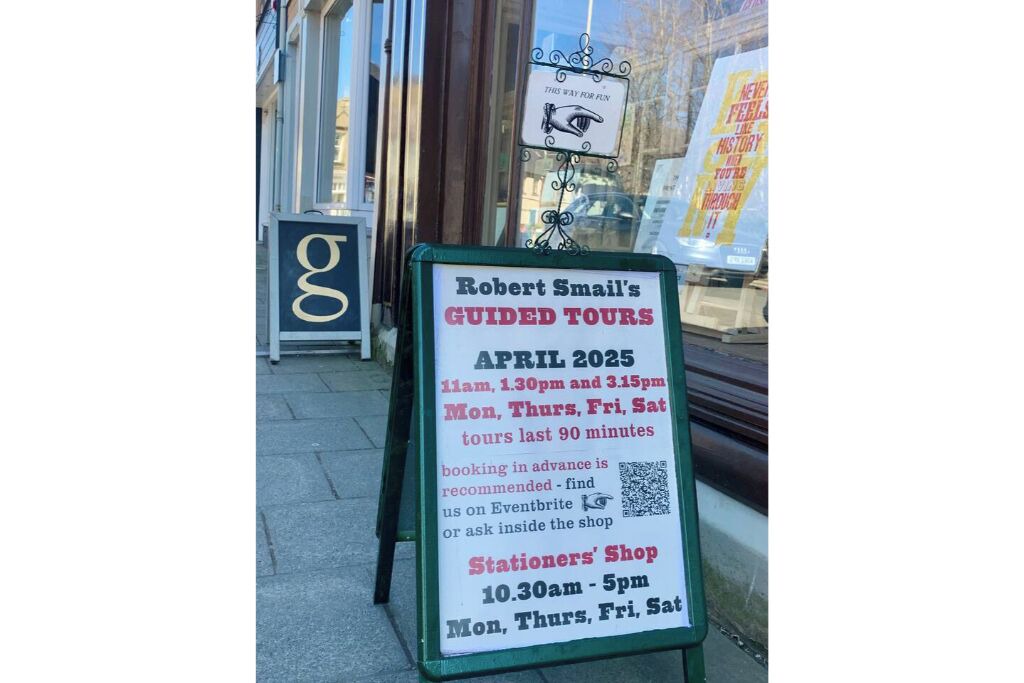 THIS WAY FOR FUN
NEVER
FEELS
LIKE
HISTORY
WHEN
YOU'RE
LIVING
THROUGH
IT
g
Robert Smail's
GUIDED TOURS
APRIL 2025
11am, 1.30pm and 3.15pm
Mon, Thurs, Fri, Sat
tours last 90 minutes
booking in advance is
recommended - find
us on Eventbrite
or ask inside the shop
Stationers' Shop
10.30am - 5pm
Mon, Thurs, Fri, Sat